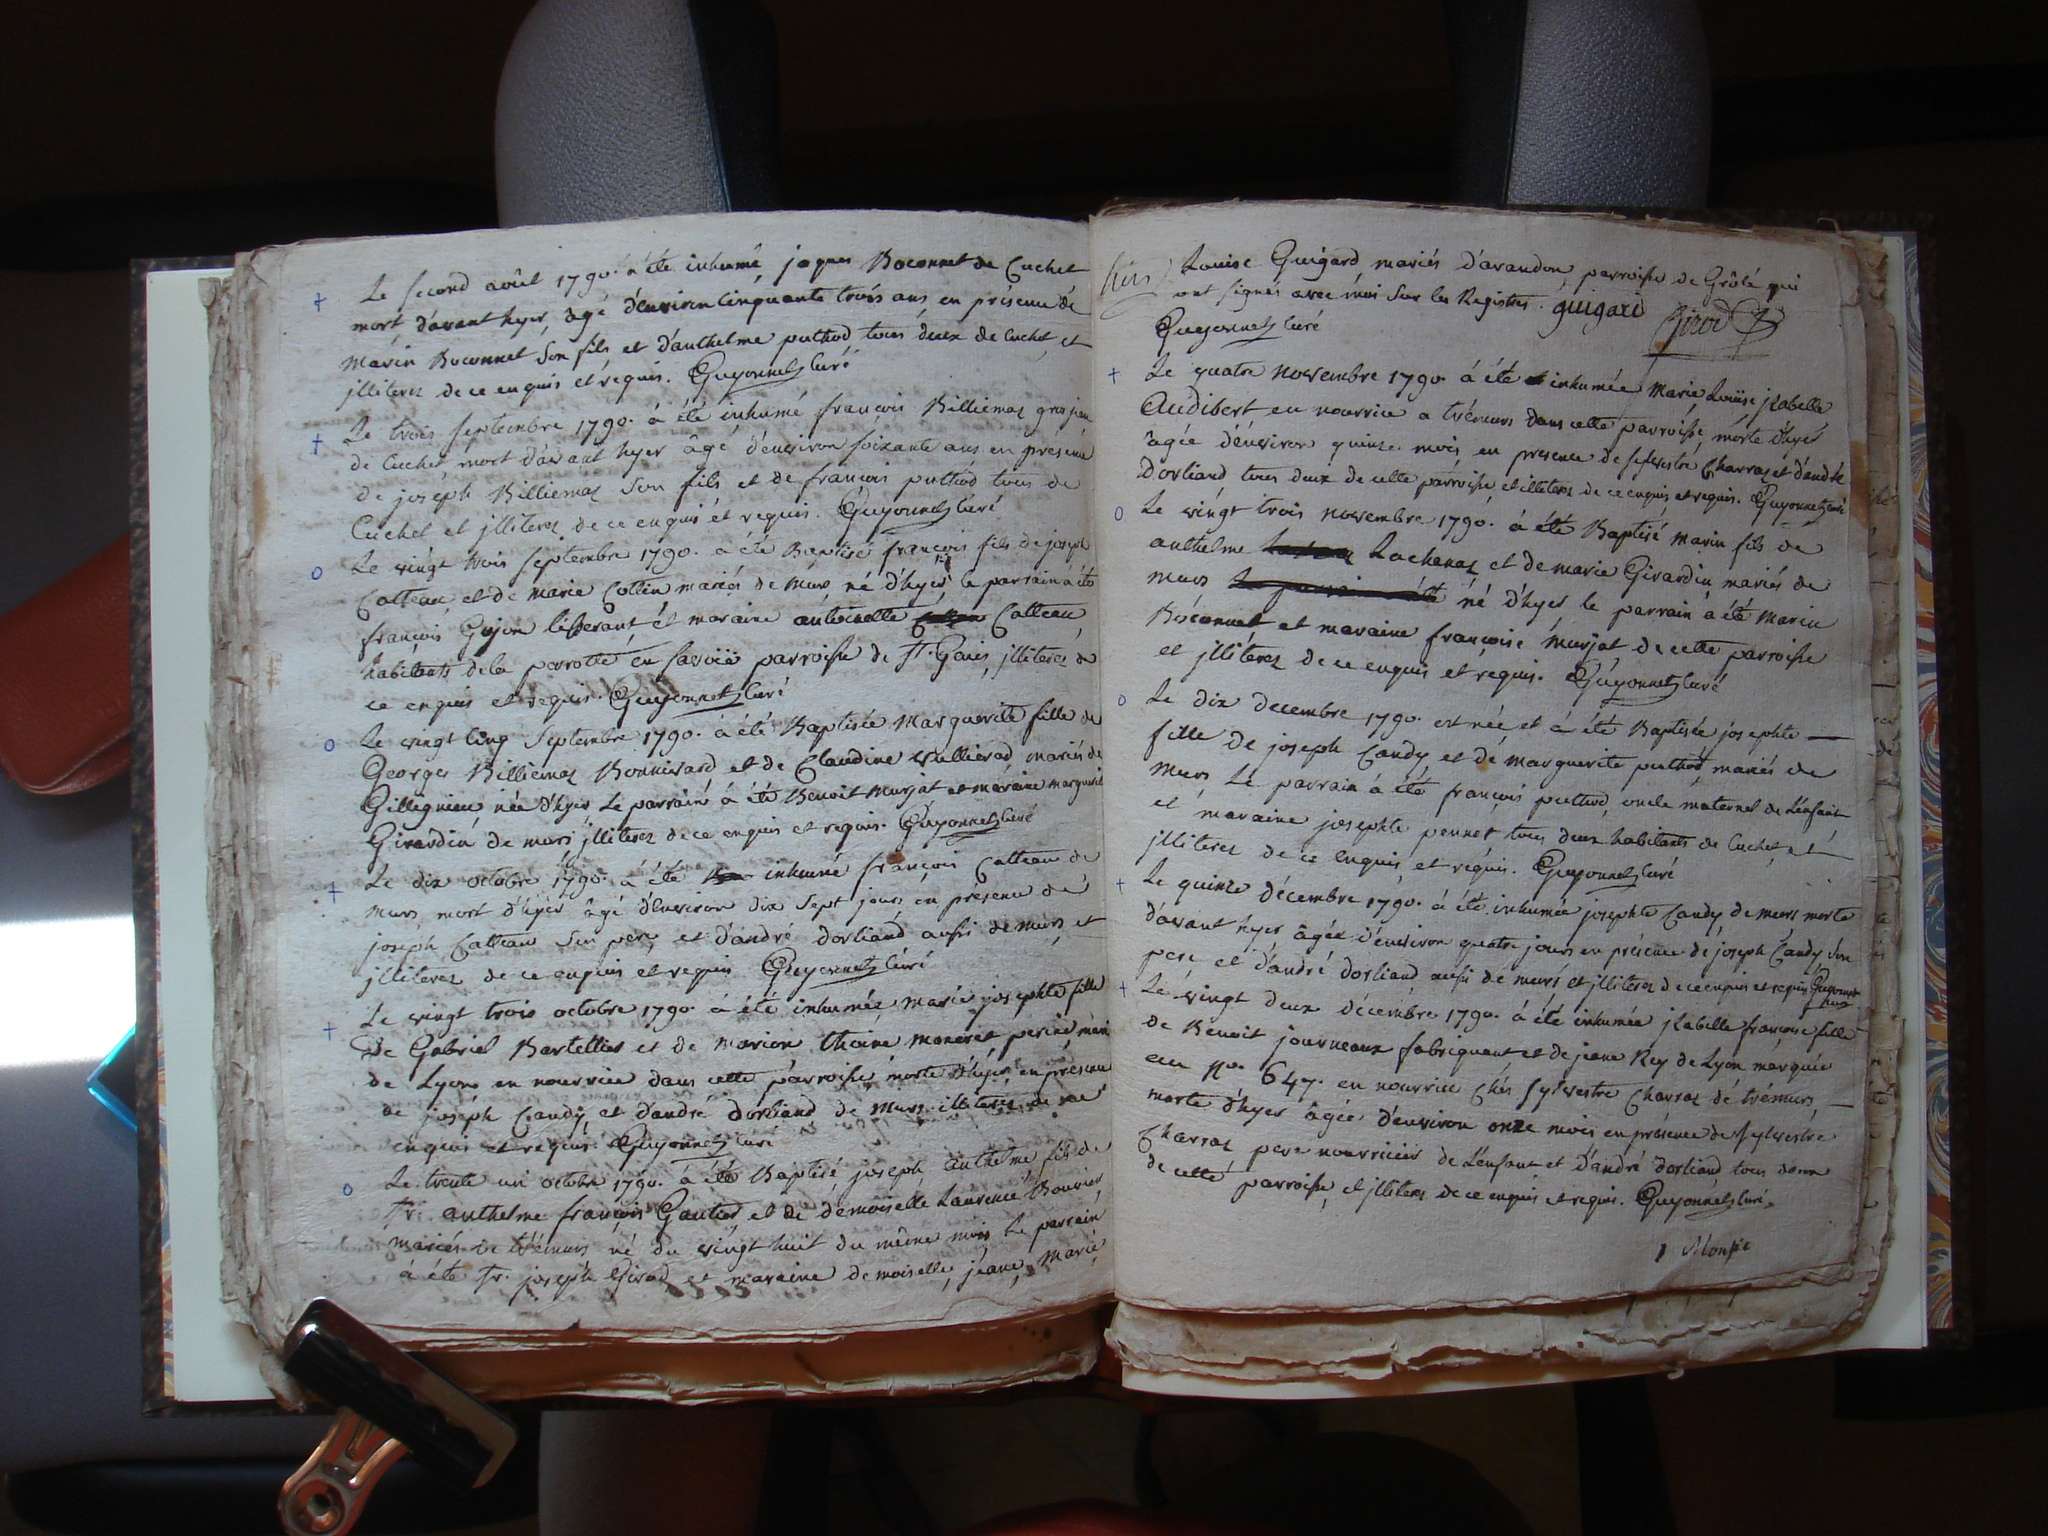 + Le second août 1790. a été inhumé jaques Boconnet de Cuchet
mort d'avant hyer, âgé d'environ cinquante trois ans, en présence de
Marin Boconnet son fils et d'anthelme puthod tous deux de Cuchet, et
jlliterez de ce enquis et requis. Guyonnet curé
+ Le trois septembre 1790. a été inhumé françois Billiemaz gros jean
de Cuchet mort d'avant hyer âgé d'environ soixante ans en présence
de joséph Billiemaz son fils et de françois puthod tous de
Cuchet et jlliterez de ce enquis et requis. Guyonnet curé
o Le vingt trois septembre 1790. a été Baptisé françois fils de joseph
Catteau et de marie Collin mariés de murs né d'hyer le parrain a été
françois Gojon et maraine antoinette Catteau
habitants de la en savoië parroisse de st. jlliterez de
ce enquis et requis. Guyonnet curé
o Le vingt cinq septembre 1790. a été Baptisée Marguerite fille de
Georges Billiemaz Bonnivard et de Claudine Vullierod mariés de
Gillegnieu, née d'hyer Le parrain a été Benoit Murjat et maraine marguerite
Girardin de murs jlliterez de ce enquis et requis. Guyonnet curé
+ Le dix octobre 1790. a été inhumé françois Catteau de
murs mort d'hyer âgé d'environ dix sept jours en présence de
joseph Catteau son pere, et d'andré dorliand aussi de murs et
jlliterez de ce enquis et requis Guyonnet curé
+ Le vingt trois octobre 1790. a été inhumée marie josephte fille
de Gabriel Bartellier et de marion
de Lyon en nourrice dans cette parroisse morte d'hyer en présence
de joséph Candy, et d'andré dorliand de murs illiterez de ce
enquis et requis. Guyonnet curé
o Le trente un octobre 1790. a été Baptisé joseph anthelme fils de
Sr. anthelme françois Gautier et de demoiselle Laurence Bouvier
mariés de trémurs né du vingt huit du même mois Le parrain
a été Sr. joseph Girod et maraine demoiselle jeane Marie
Louise Guigard mariés d'arandon parroisse de Grôlé qui
ont signés avec moi sur les Registres. guigard Girod
Guyonnet curé
+ Le quatre novembre 1790. a été inhumée Marie Louise jsabelle
Audibert en nourrice a trémurs dans cette parroisse, morte d'hyer
âgée d'environ quinze mois, en presence de sylvestre Charraz et d'andré
dorliand tous deux de cette parroisse et illiterez de ce enquis et requis. Guyonnet curé
o Le vingt trois novembre 1790. a été Baptisé marin fils de
anthelme Lachenaz et de marie Girardin mariés de
murs né d'hyer le parrain a été Marin
Boconnet et maraine françoise Murjat de cette parroisse
et jlliterez de ce enquis et requis. Guyonnet curé
o Le dix decembre 1790. est née et a été Baptisée josephte
fille de joseph Candy, et de marguerite puthod mariés de
murs Le parrain a été françois puthod oncle maternel de L'enfant
et maraine josephte pennet tous deux habitants de Cuchet et
jlliterez de ce enquis et requis. Guyonnet curé
+ Le quinze décembre 1790. a été inhumée josephte Candy de murs, morte
d'avant hyer âgée d'environ quatre jours en présence de joseph Candy son
pere, et d'andré dorliand aussi de murs et jlliterez de ce enquis et requis Guyonnet
curé
+ Le vingt deux décembre 1790. a été inhumée jsabelle françoise fille
de Benoit journeaux fabriquant et de jeane Rey de Lyon marquée
au no. 647. en nourrice chés sylvestre Charraz de trémurs
morte d'hyer âgée d'environ onze mois en présence de sylvestre
Charraz pere nourricier de L'enfant et d'andré dorliand tous deux
de cette parroisse, et jlliterez de ce enquis et requis. Guyonnet curé.